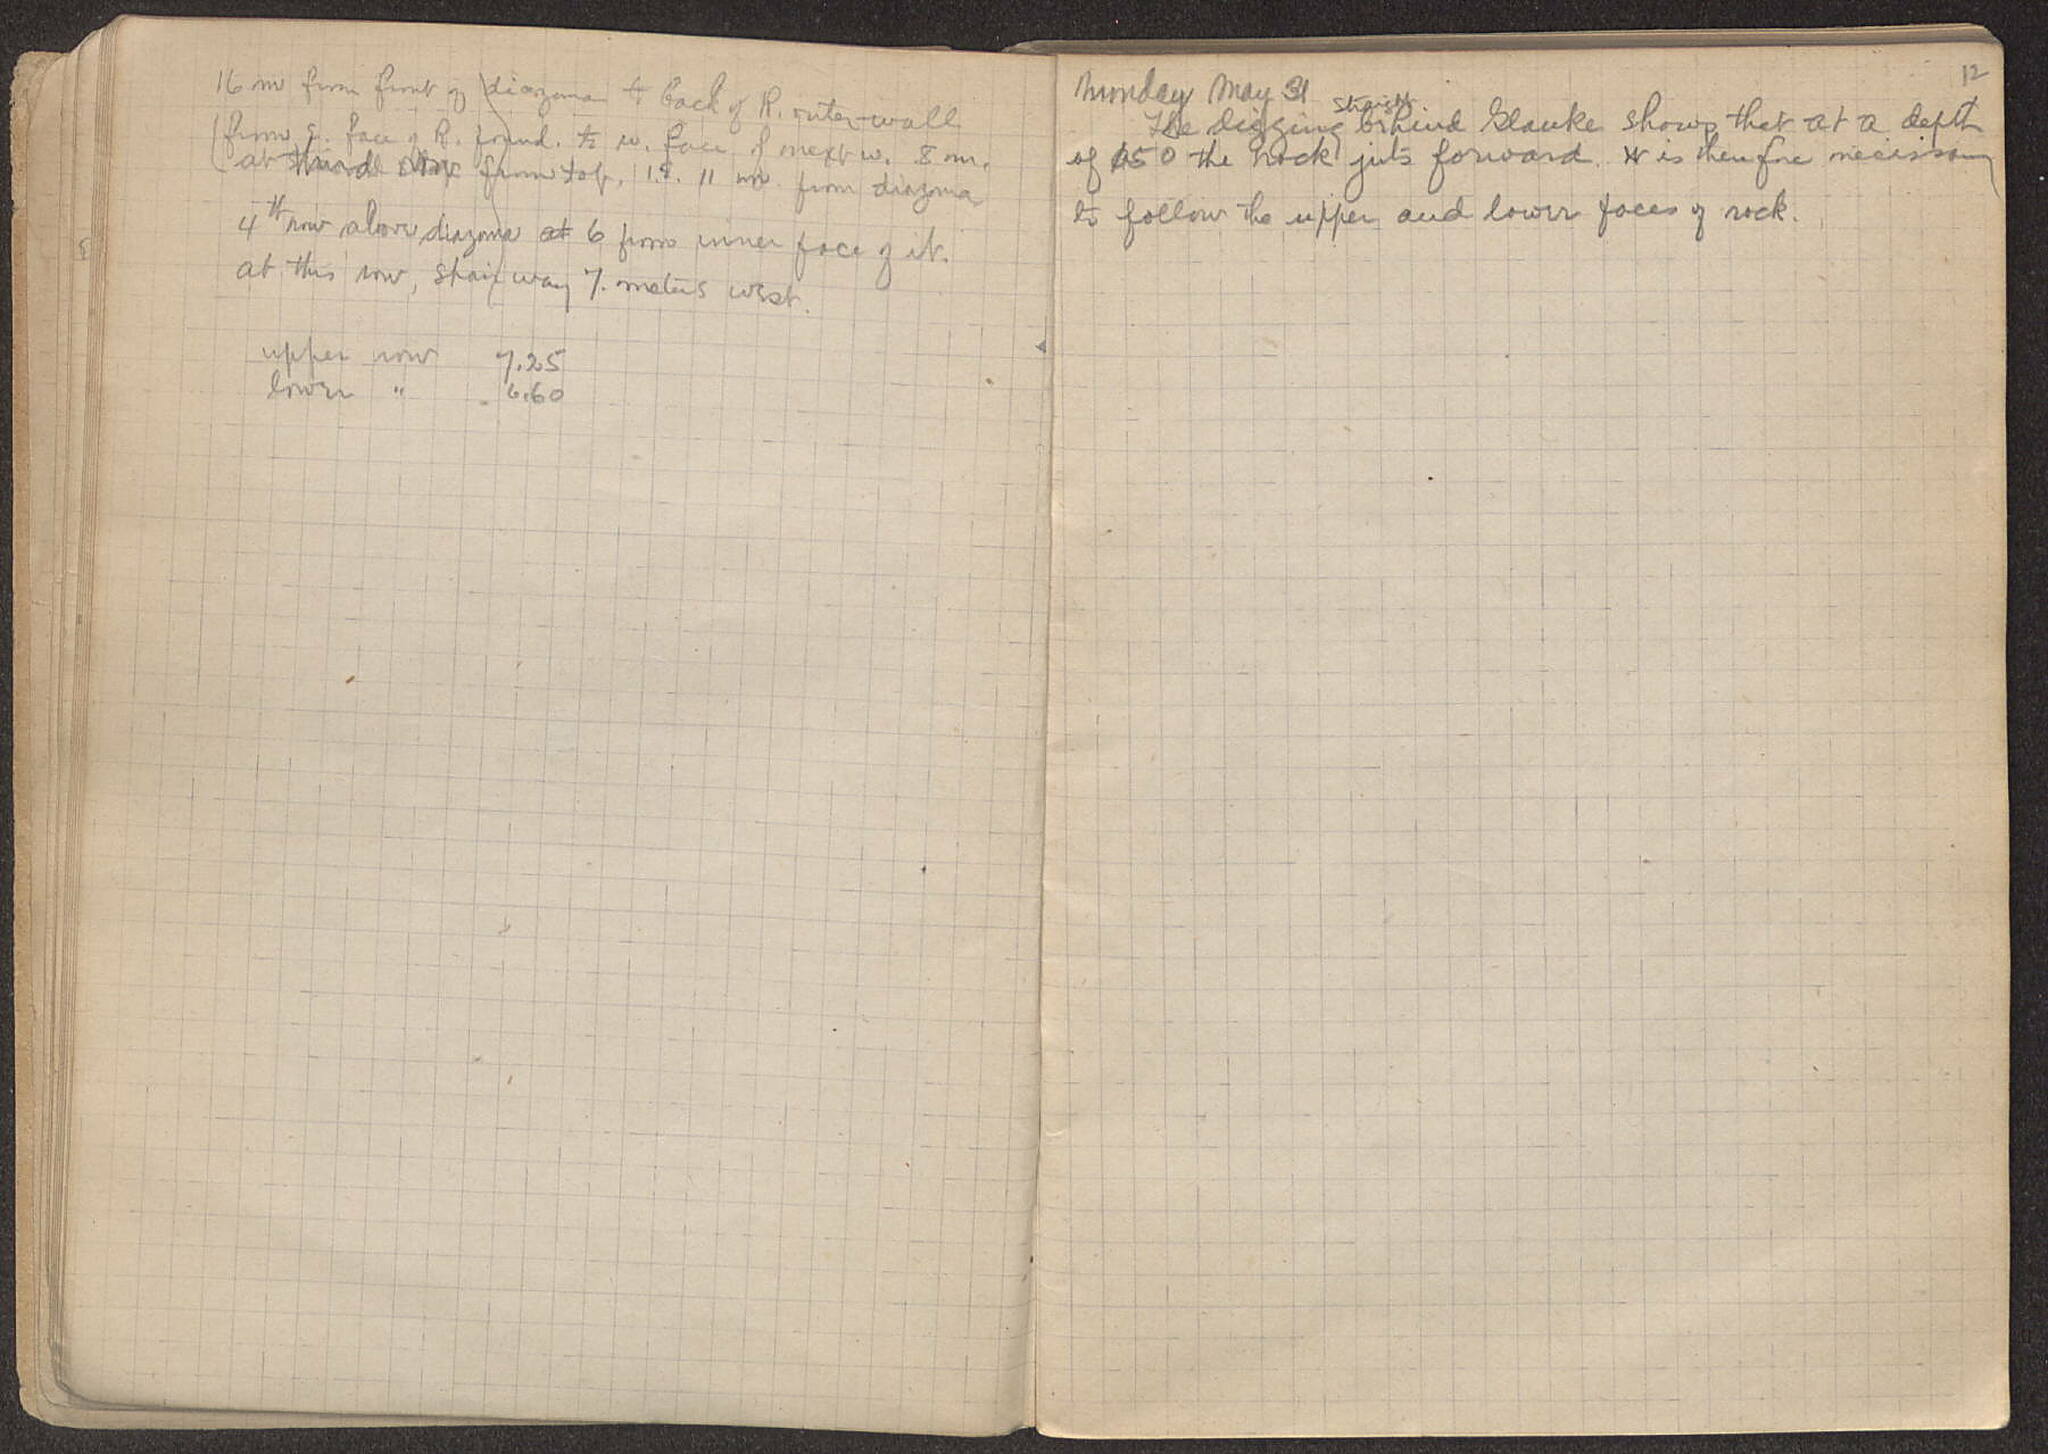 16 m from front of diazoma to back of R. outer-wall
from E. face of R. found. to w. face of next w. 8 m.
at third row from top, 15. 11 m. from diazoma
4th row above diazoma at 6 from inner face of it.
at this row, stairway 7. meters west.
upper row 7.25
lower " 6.60
12
Monday May 31
straight
The digging behind Glauke shows that at a depth
of 650 the rock juts forward. It is therefore necessary
to follow the upper and lower faces of rock.